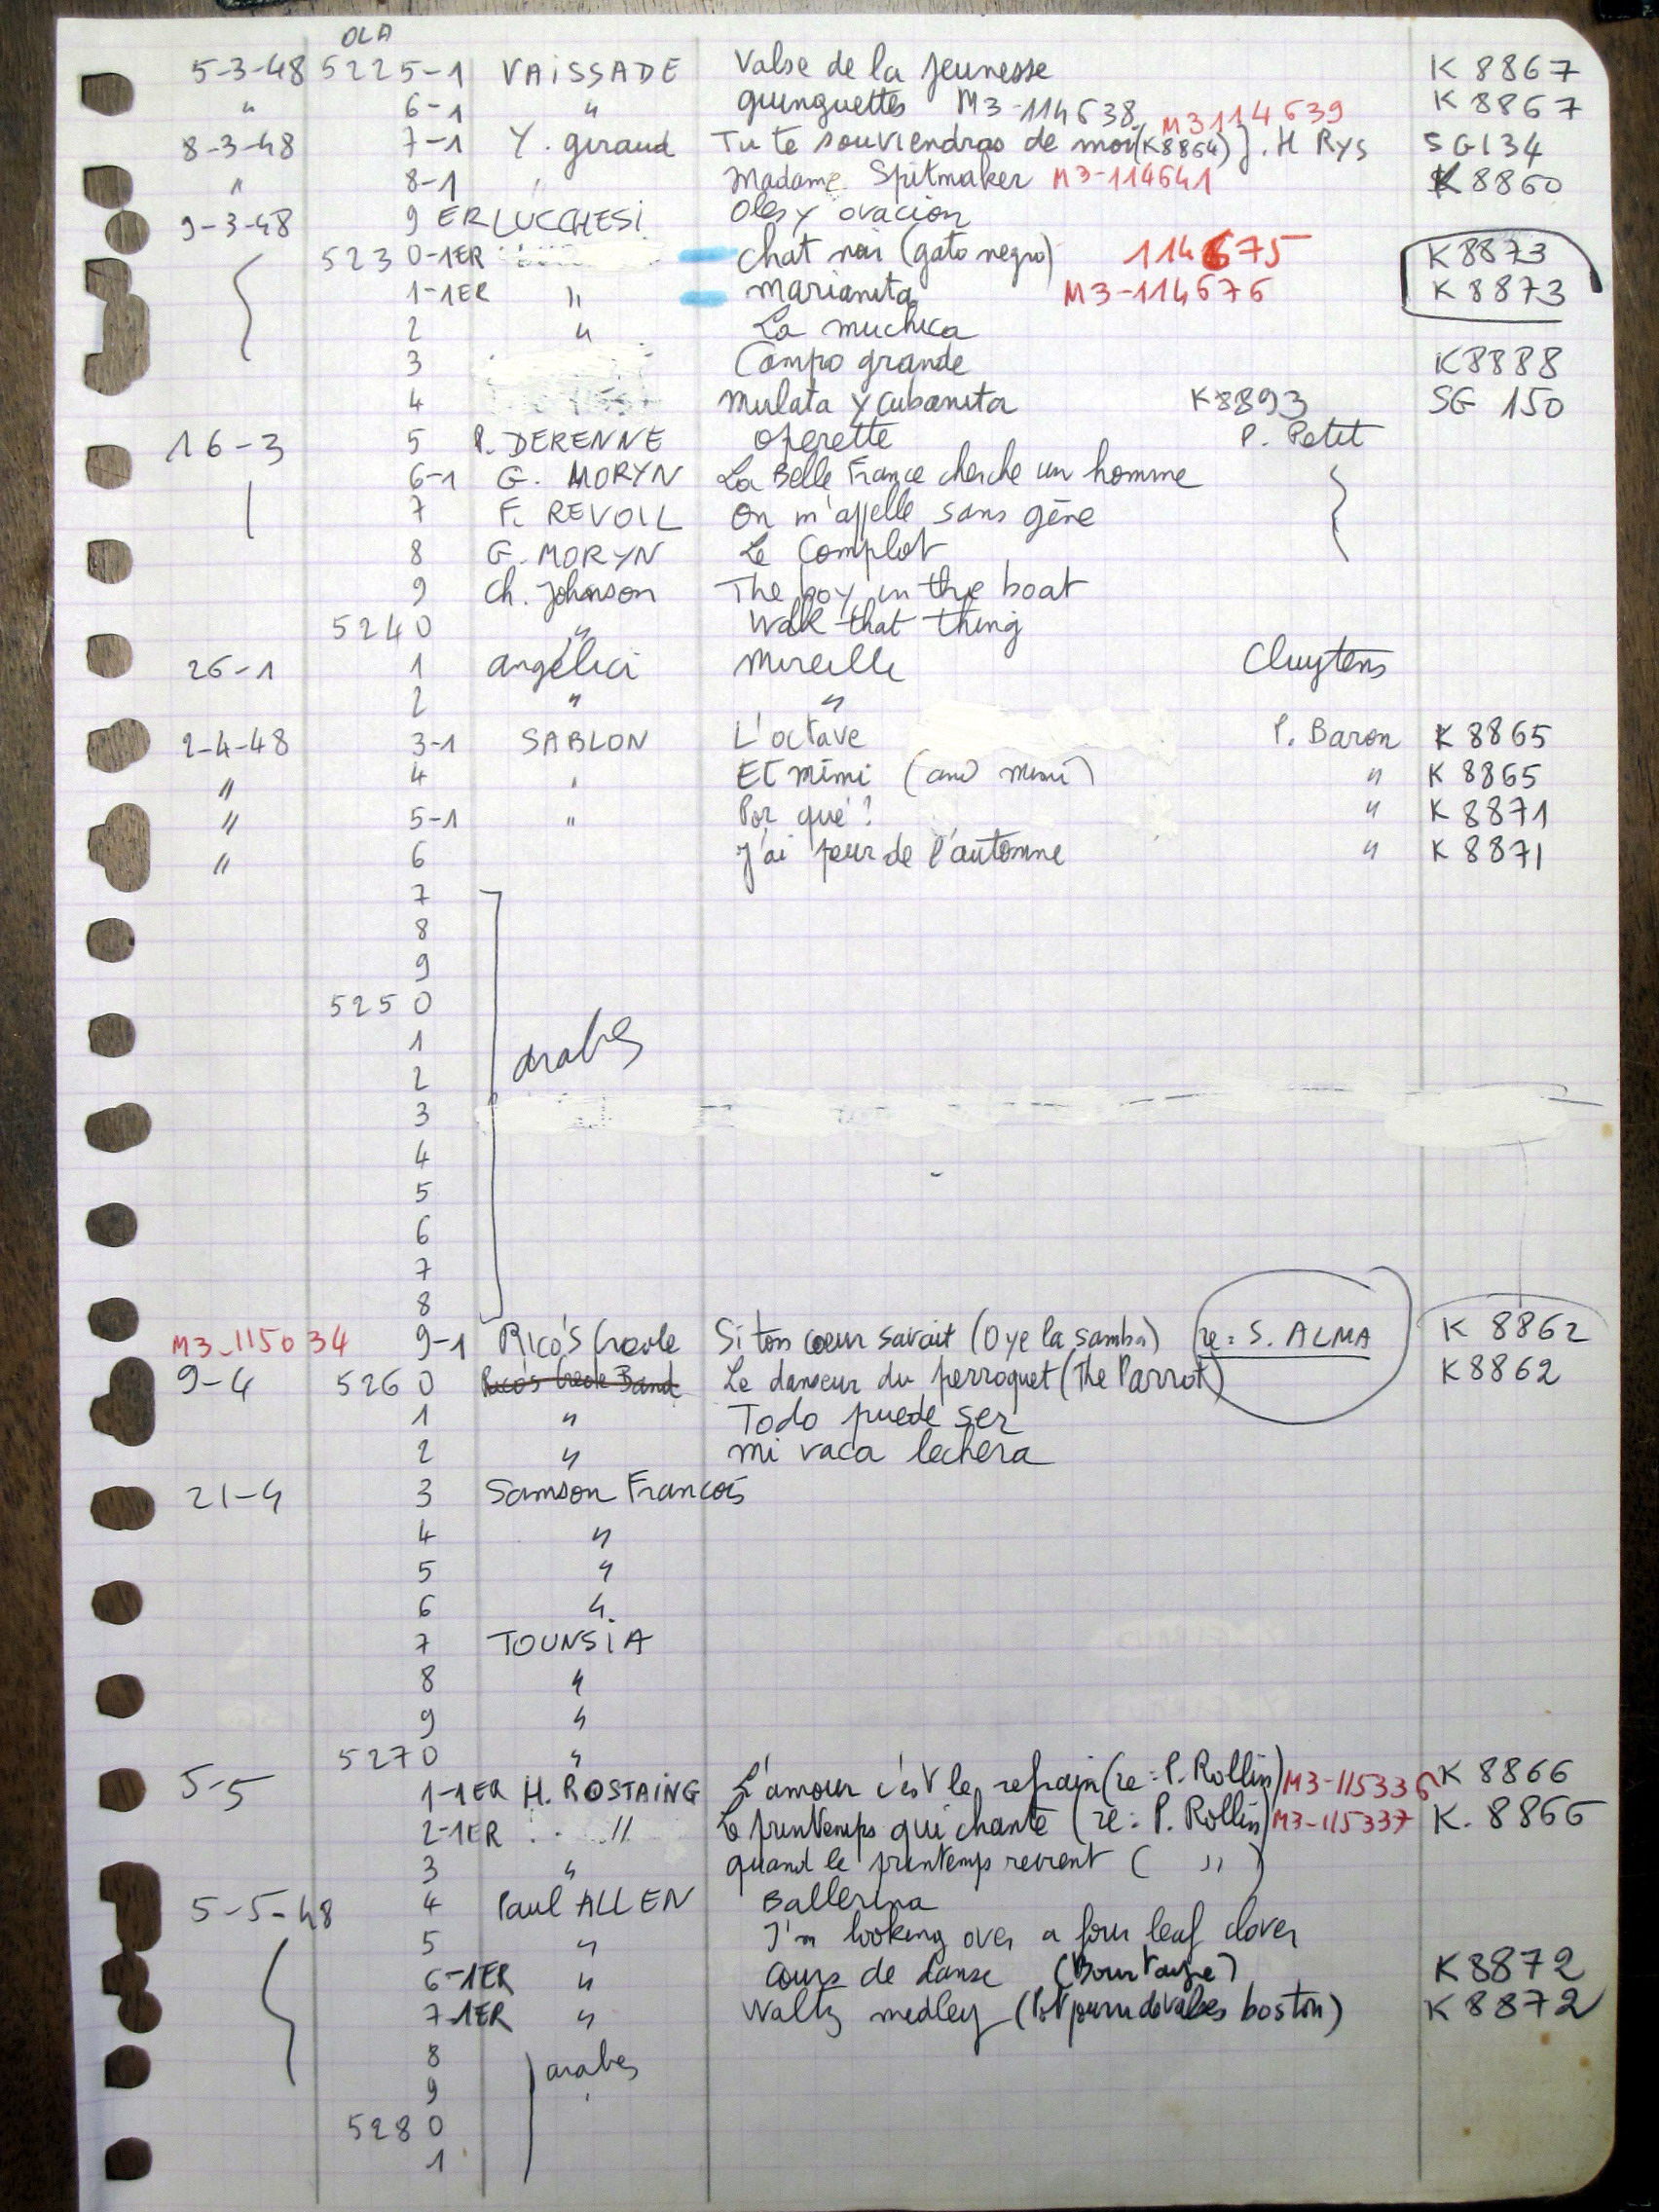 OLA
5-3-48 5225-1 VAISSADE Valse de la jeunesse K 8867
" 6-1 " guinguettes M3-114638 K 8867
M3114639
8-3-48 7-1 Y. giraud Tu te souviendras de moi (K8864) J. H Rys SG134
" 8-1 " Madame Spitmaker M3-114641 K 8860
9-3-48 9 ER LUCCHESI Oles y ovacion
5230-1ER chat noir (gato negro) 114675 K8873
1-1ER " marianita M3-114676 K 8873
2 " La muchica
3 Campo grande K8888
4 mulata y cubanita K8893 SG 150
16-3 5 P. DERENNE operette P. Petit
6-1 G. MORYN La Belle France cherche un homme
7 F. REVOIL On m'appelle sans gêne
8 G. MORYN Le Complot
9 Ch. Johnson The boy in the boat
5240 " Walk that thing
26-1 1 angélici mireille Cluytens
2 " "
2-4-48 3-1 SABLON L'octave P. Baron K 8865
" 4 " Et mimi (and mimi) " K 8865
" 5-1 " Por qué? " K 8871
" 6 J'ai peur de l'automne " K 8871
7
8
9
5250
1
arabes
2
3
4
5
6
7
8
M3-115034 9-1 Rico's Creole Si ton coeur savait (Oye la samba) re: S. ALMA K 8862
9-4 5260 Rico's Creole Band Le danseur du perroquet (The Parrot) K8862
1 " Todo puede ser
2 " mi vaca lechera
21-4 3 Samson Francois
4 "
5 "
6 "
7 TOUNSIA
8 "
9 "
5270 "
5-5 1-1ER H. ROSTAING L'amour c'est le refrain (re: P. Rollin) M3-115336 K 8866
2-1ER " Le printemps qui chante (re: P. Rollin) M3-115337 K. 8866
3 " quand le printemps revient ( " )
5-5-48 4 Paul ALLEN Ballerina
5 " I'm looking over a four leaf clover
6-1ER " cours de danse K8872
7-1ER " Waltz medley (Pot pourri de valses boston) K 8872
8 arabes
9 "
5280
1